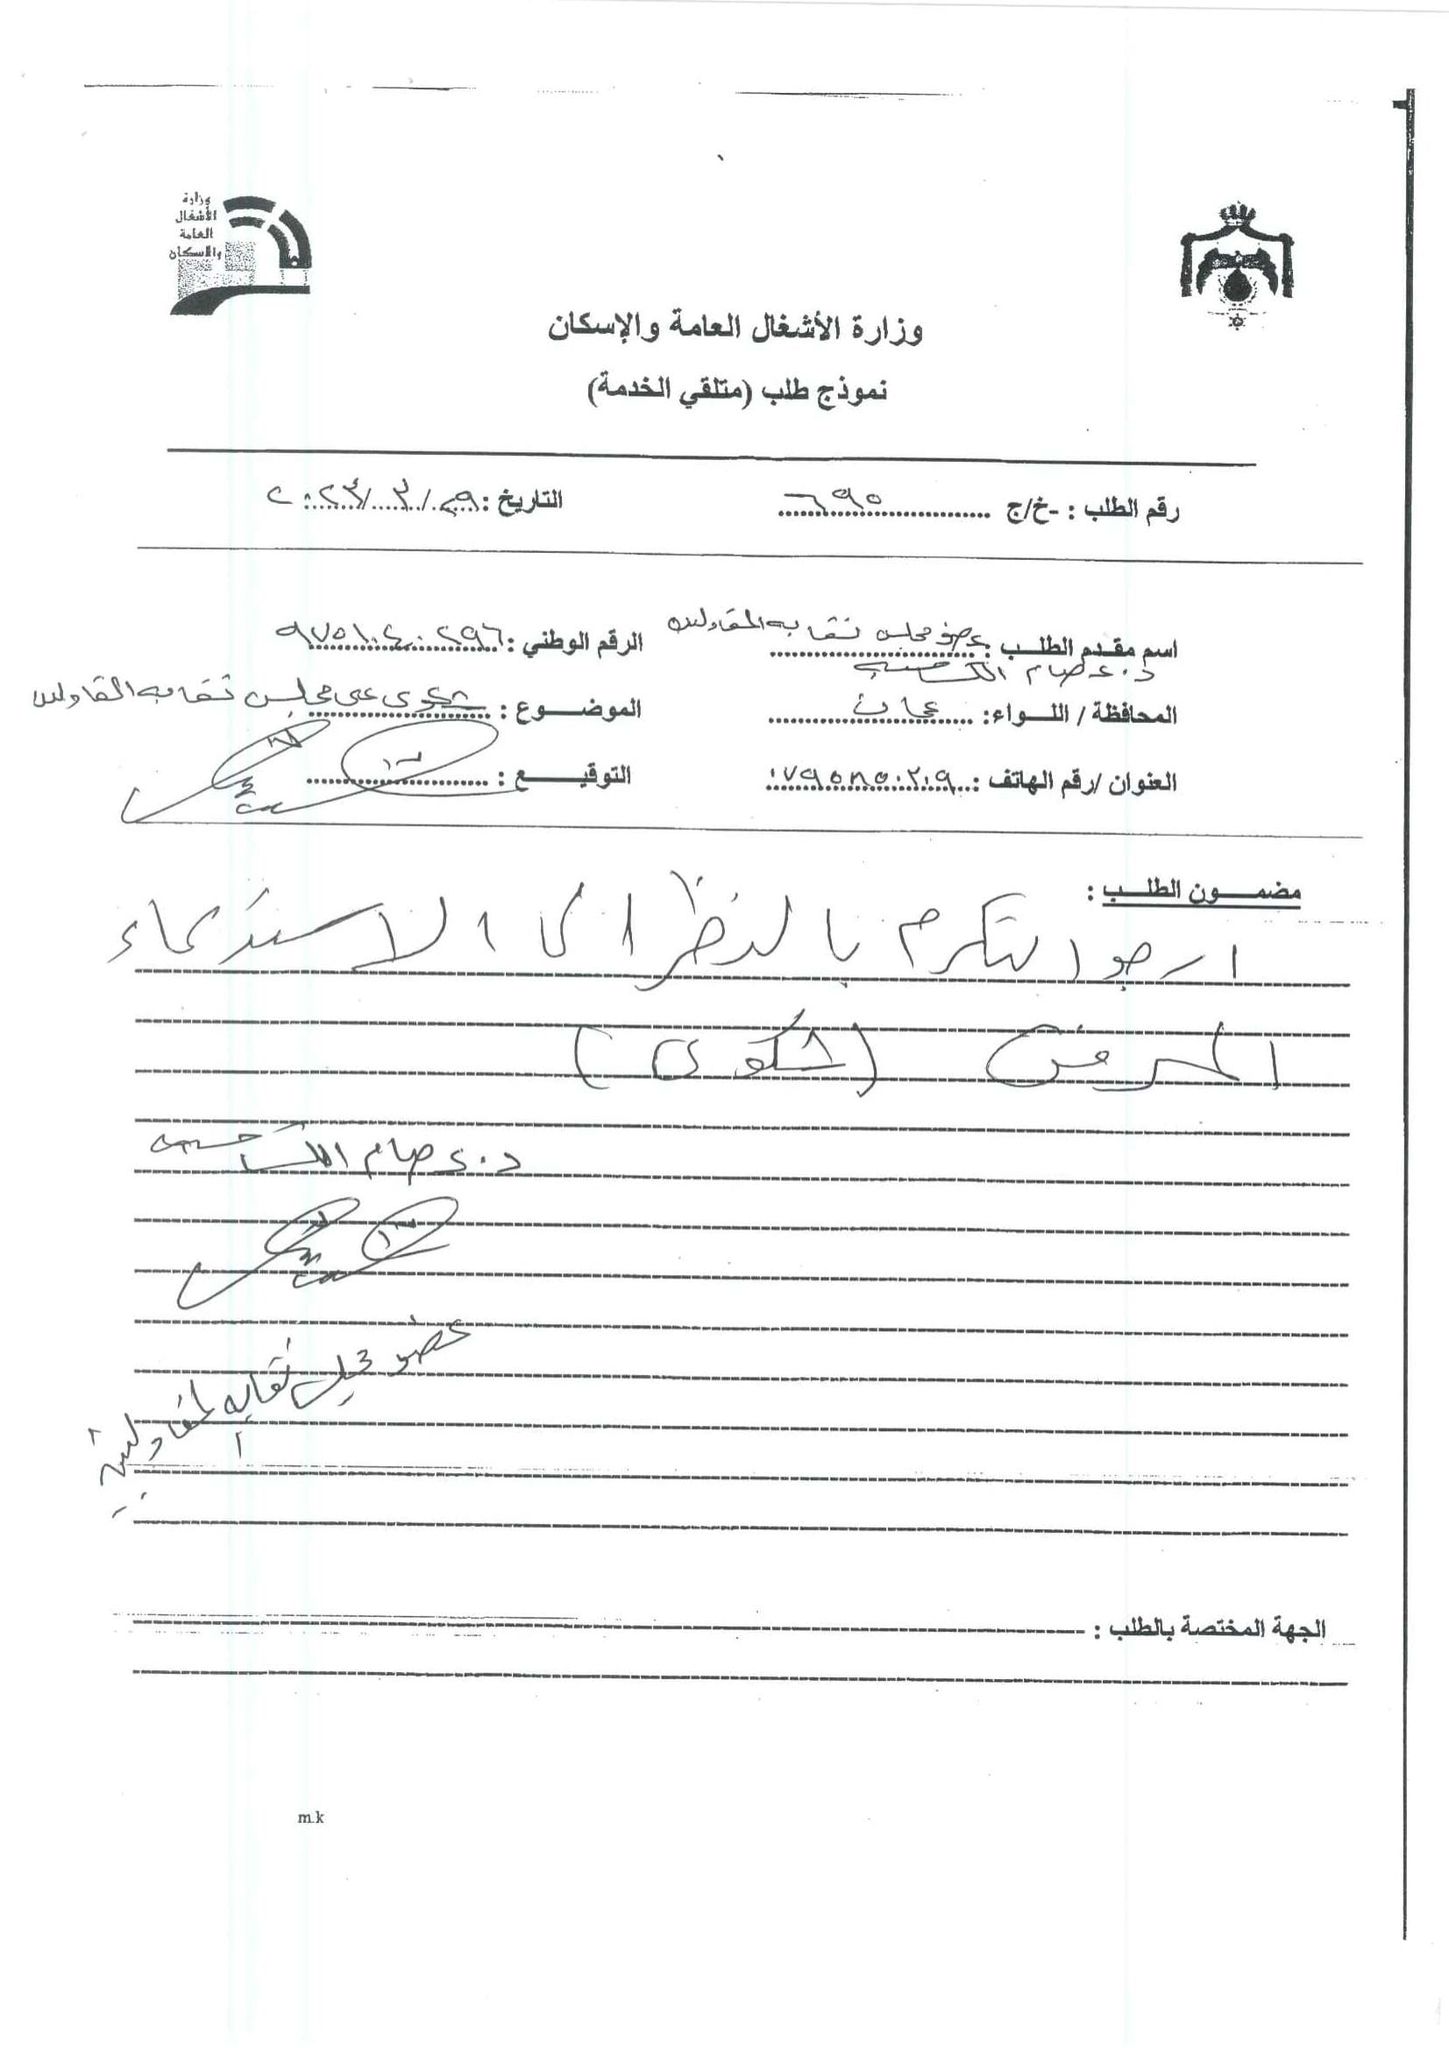 وزارة
الأشغال
العامة
والاسكان
وزارة الأشغال العامة والإسكان
نموذج طلب (متلقي الخدمة)
رقم الطلب : -خ/ج ٦٩٥ التاريخ : ٢٩/٣/٢٠٢٣
اسم مقدم الطلب : عضو مجلس نقابة المقاولين الرقم الوطني : ٩٧٥١٠٤٠٢٩٦
د. عصام
المحافظة / اللواء: عمان الموضوع : شكوى على مجلس نقابة المقاولين
العنوان /رقم الهاتف : ٠٧٩٥٨٥٠٢٠٩ التوقيع :
مضمون الطلب :
ارجو التكرم بالنظر الى الاستدعاء
المرفق (شكوى)
د. عصام
عضو مجلس نقابة المقاولين
الجهة المختصة بالطلب :
m.k